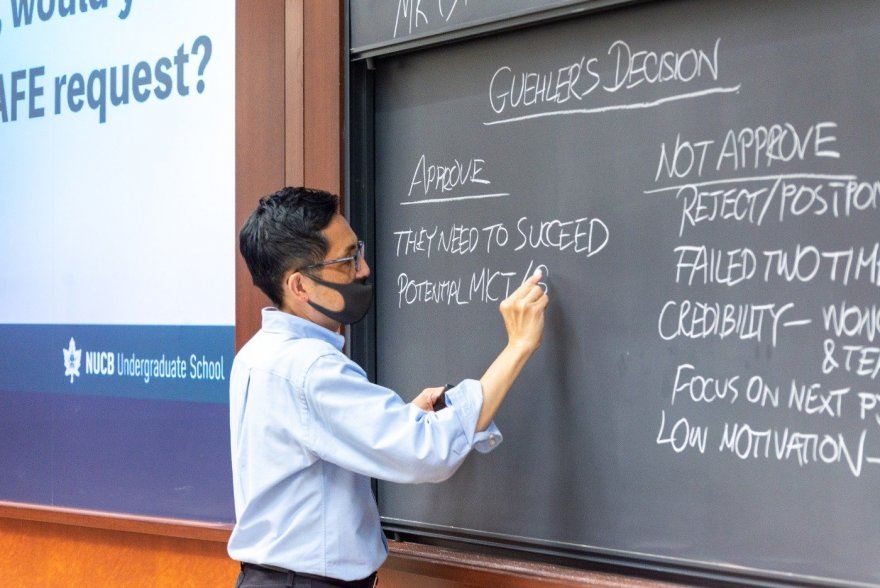 would
AFE request?
NUCB Undergraduate School
MK
GUEHLER'S DECISION
APPROVE
THEY NEED TO SUCCEED
POTENTIAL MKT/
NOT APPROVE
REJECT/POSTPON
FAILED TWO TIM
CREDIBILITY—
&
FOCUS ON NEXT
LOW MOTIVATION—